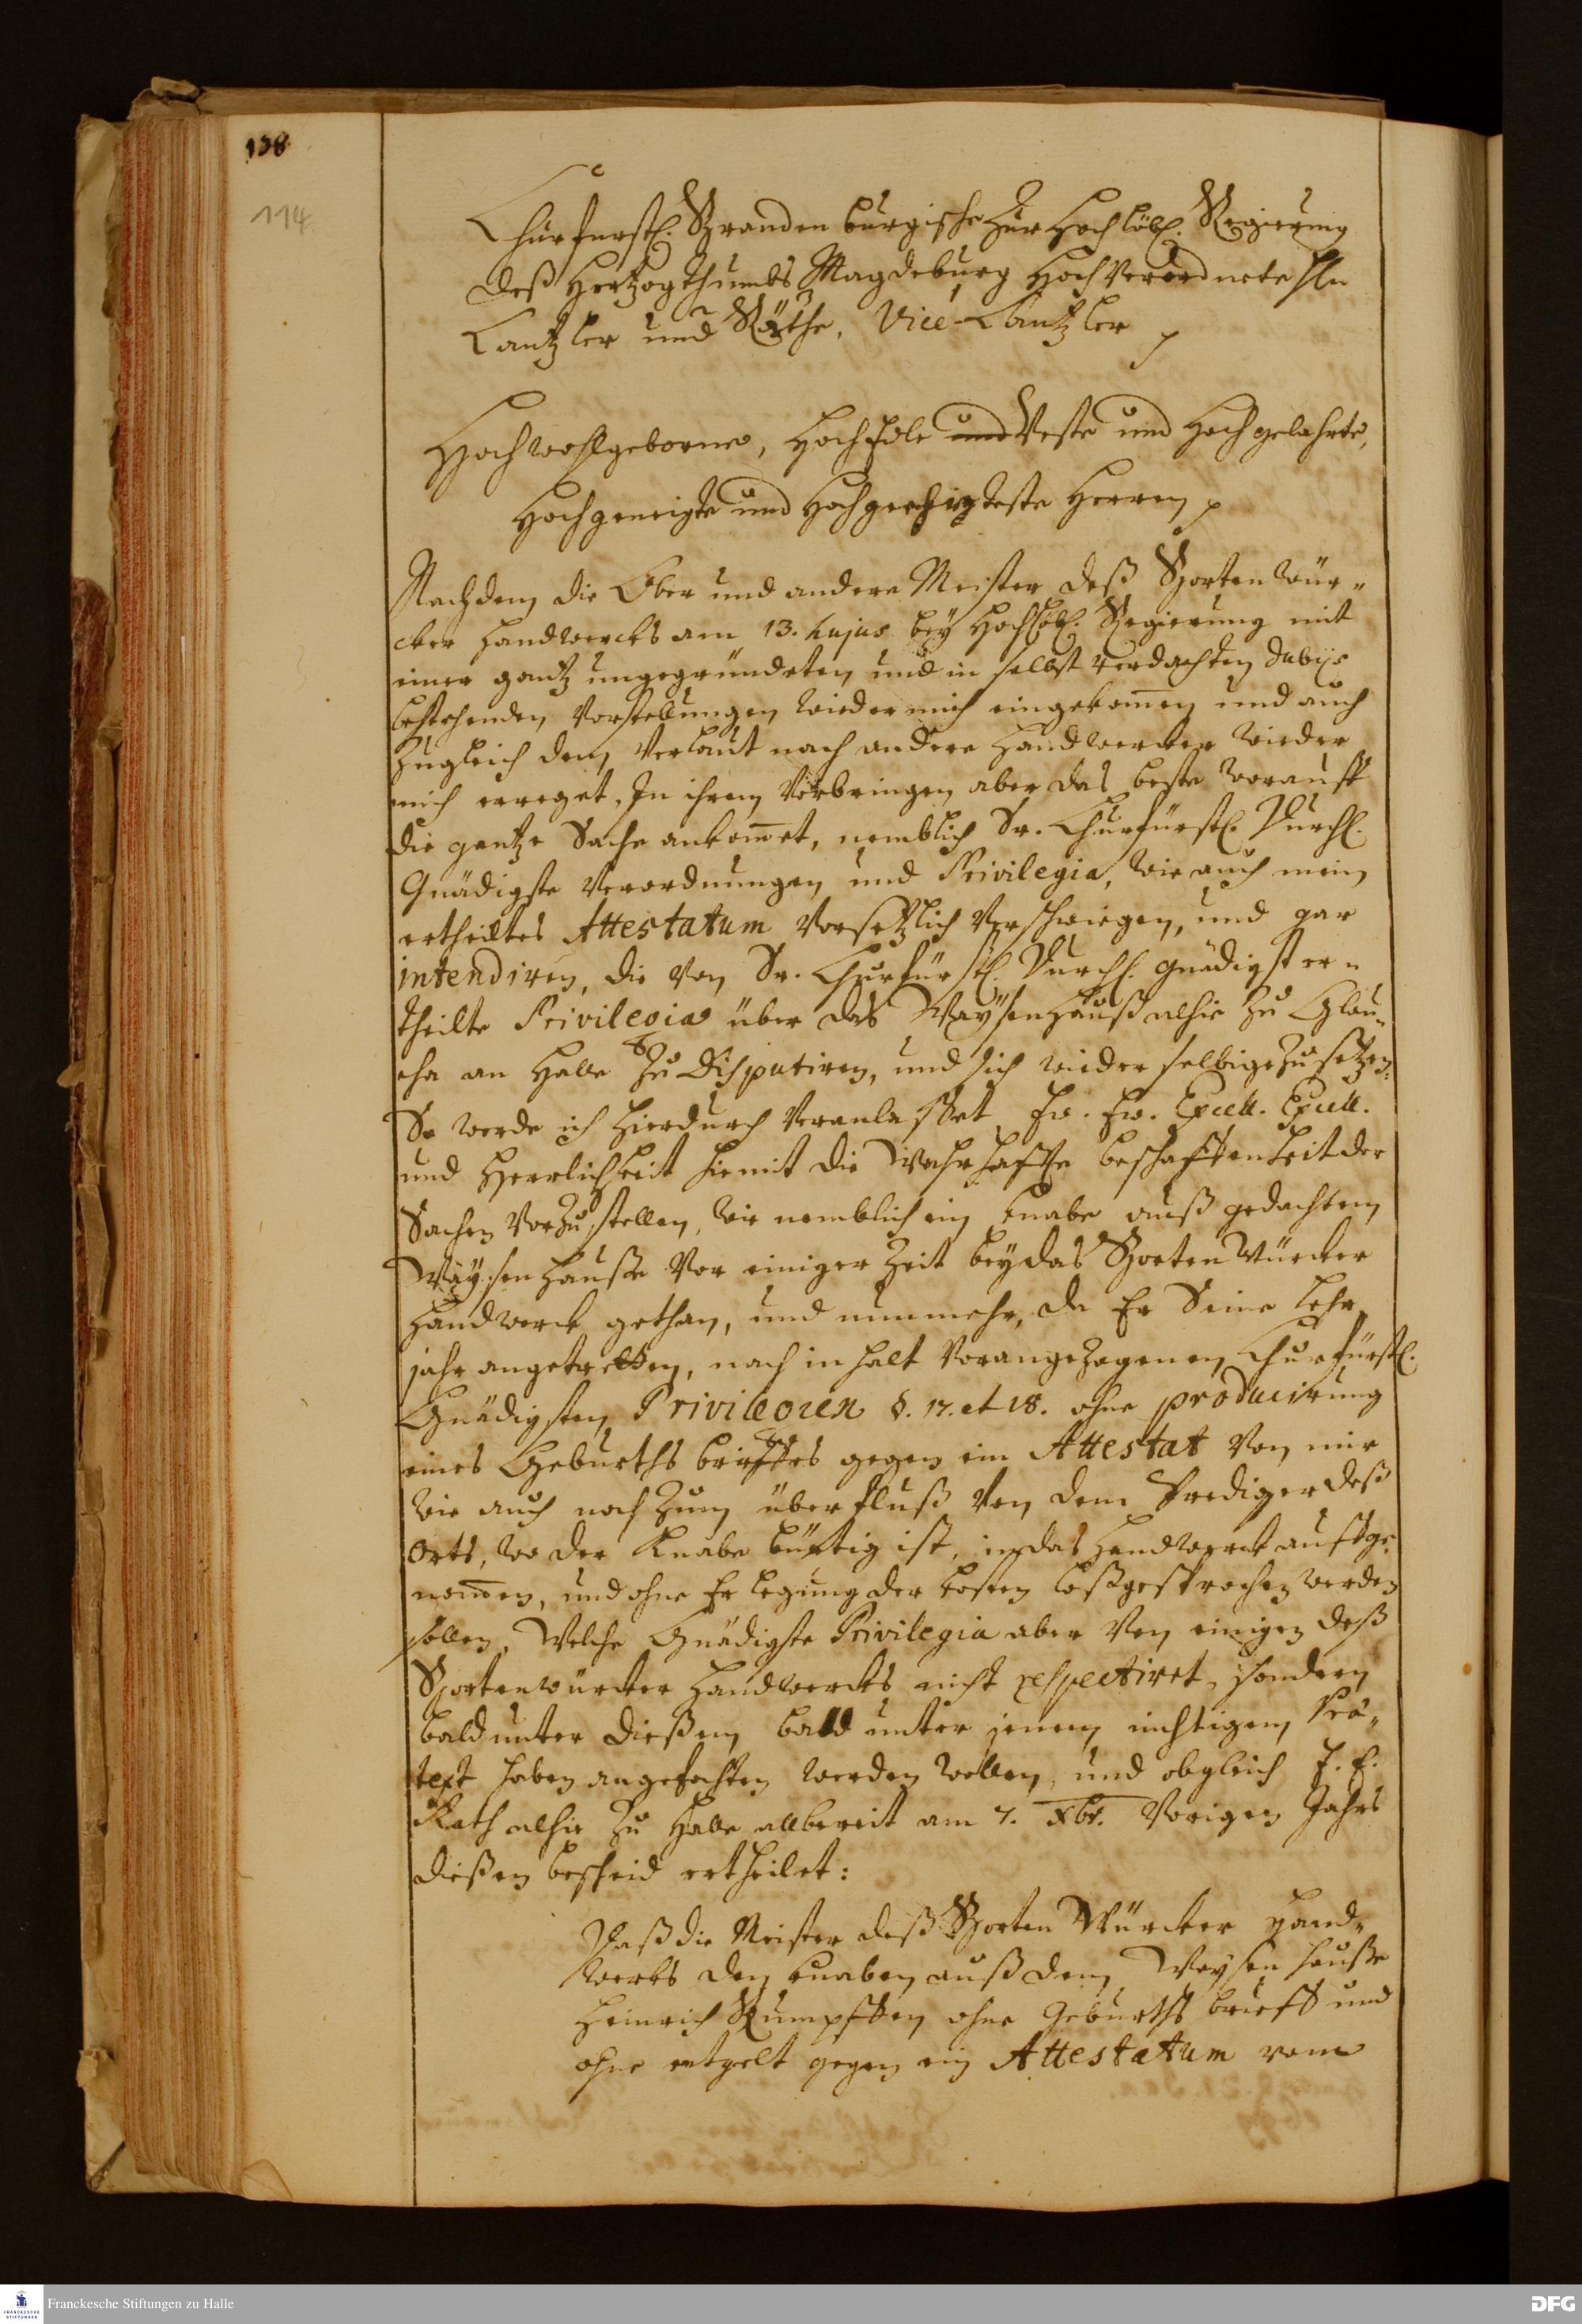 138
114
Churfürstl. Brandenburgische Zur Hochlöbl. Regierung
deß Hertzogthumbs Magdeburg Hoch Verordnete Hln
Cantzler und Räthe, Vice-Cantzler p
Hochwohlgeborne, HochEdle und Veste und Hochgelahrte,
Hochgeneigte und Hochgeehrteste Herren p
Nachdem die Ober und andere Meister deß Borten Wür„
cker Handwercks am 13. hujus bey Hochlöbl. Regierung mit
einer gantz ungegründeten und in selbst erdachten dubijs
bestehenden Vorstellungen wieder mich eingekom̄en und auch
Zugleich dem Verlaut nach andere Handwercker wieder
mich erreget, In ihrem Vorbringen aber das beste worauff
die gantze Sache ankom̄et, nemblich Sr. Churfürstl. Durchl.
Gnädigste Verordnungen und Privilegia, wie auch mein
ertheiltes Attestatum Vorsetzlich Verschwiegen, und gar
intendiren, die von Sr. Churfürstl. Durchl. gnädigst er„
theilte Privilegia über das Waysenhauß alhie zu Glau„
cha an Halle Zu Disputiren, und sich wieder selbige zu setzen:
So werde ich hierdurch Veranlasset Ew. Ew. Excell. Excell.
und Herrlichkeit hiemit die Wahrhaffte beschaffenheit der
Sachen Vorzustellen, wie nemblich ein Knabe auß gedachtem
Waysenhause Vor einiger Zeit bey das Borten Würcker
Handwerck gethan, und nunmehr, da Er Seine Lehr
jahr angetretten, nach inhalt Vorangezogenen Churfürstl.
Gnädigsten Privilegien §. 17. et 18. ohne producirung
eines Geburths briefes gegen ein Attestat Von mir
wie auch noch Zum überfluß Von dem Prediger deß
Orts, wo der Knabe bürtig ist, in das Handwerck auffge„
nom̄en, und ohne Erlegung der Kosten loßgesprochen werden
sollen, Welche Gnädigste Privilegia aber Von einigen deß
Bortenwürcker Handwercks nicht respectiret, sondern
bald unter dießem, bald unter jenem nichtigem Prä„
text haben angefochten werden wollen, und obgleich E. E.
Rath alhie zu Halle allbereit am 7. Xbr. Vorigen Jahrs
dießen bescheid ertheilet:
Daß die Meister deß Borten Würcker Hand„
wercks den Knaben auß dem Waysenhauße
Heinrich Rumpffen ohne Geburths brieff und
ohne entgelt gegen ein Attestatum vom
Franckesche Stiftungen zu Halle
FRANCKESCHE STIFTUNGEN
DFG